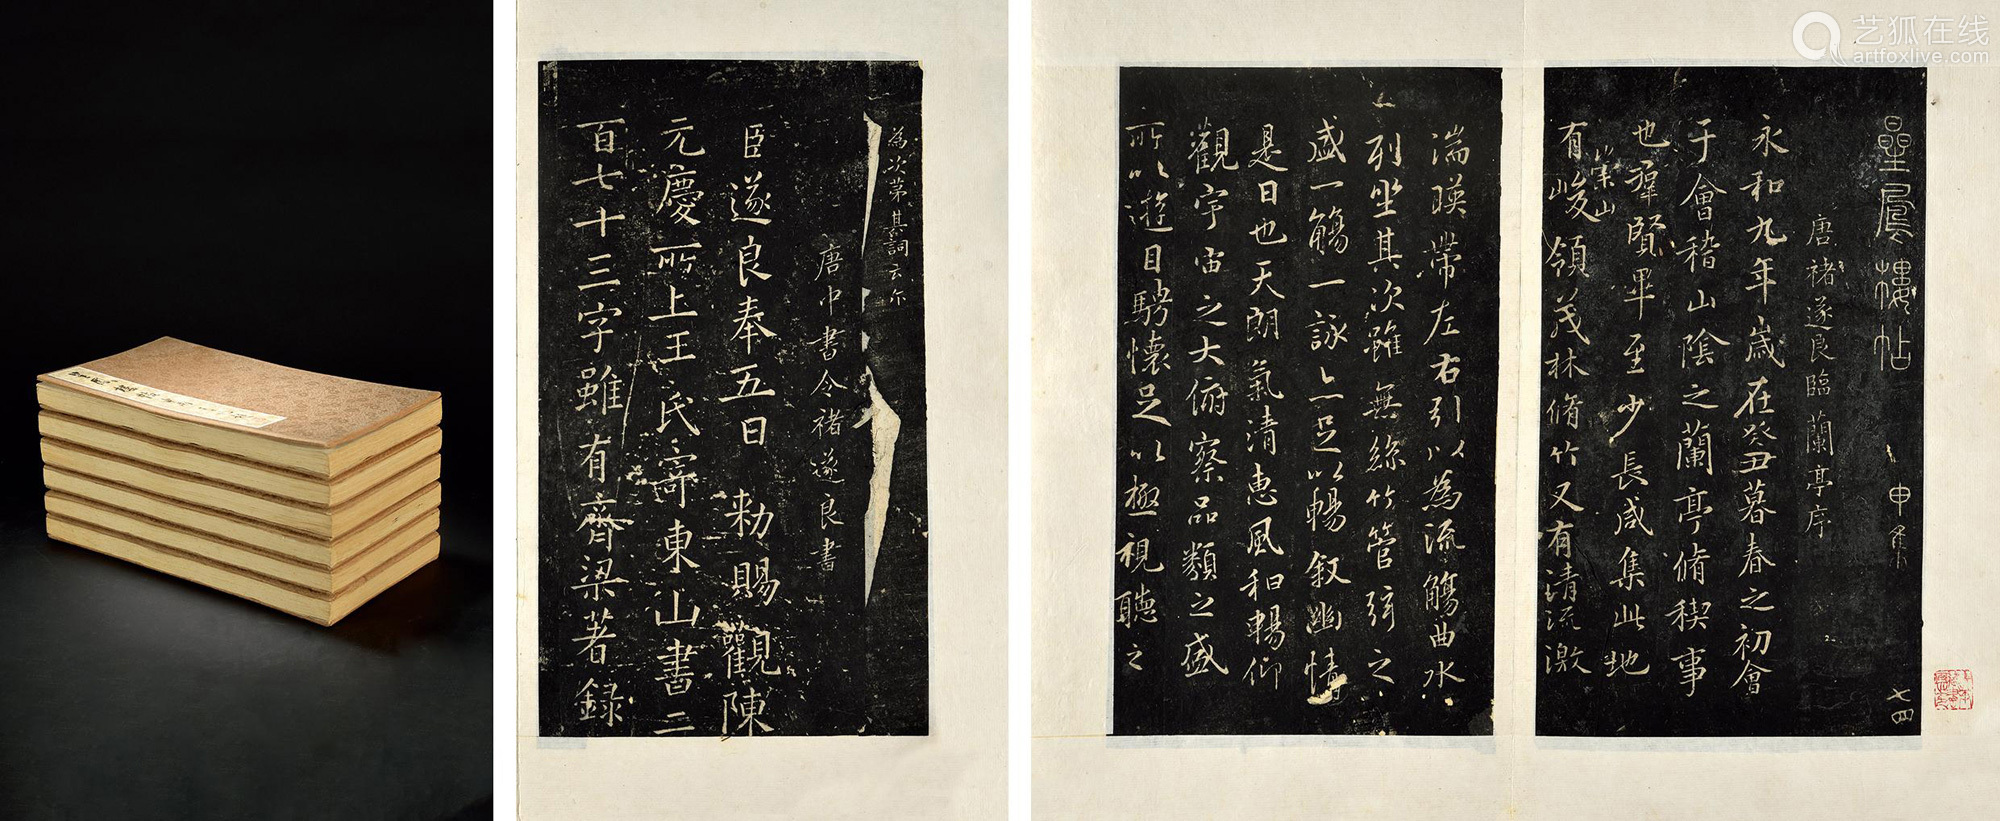 艺狐在线
artfoxlive.com
為次第其詞云尔
唐中書令褚遂良書
臣遂良奉五日 勑賜觀陳
元慶所上王氏寄東山書二
百七十三字雖有齊梁著錄
星鳳樓帖
申集
七四
唐褚遂良臨蘭亭序
永和九年歲在癸丑暮春之初會
于會稽山陰之蘭亭脩稧事
也羣賢畢至少長咸集此地
崇山
有峻領茂林脩竹又有清流激
湍暎帶左右引以為流觴曲水
列坐其次雖無絲竹管弦之
盛一觴一詠亦足以暢叙幽情
是日也天朗氣清惠風和暢仰
觀宇宙之大俯察品類之盛
所以遊目騁懷足以極視聽之